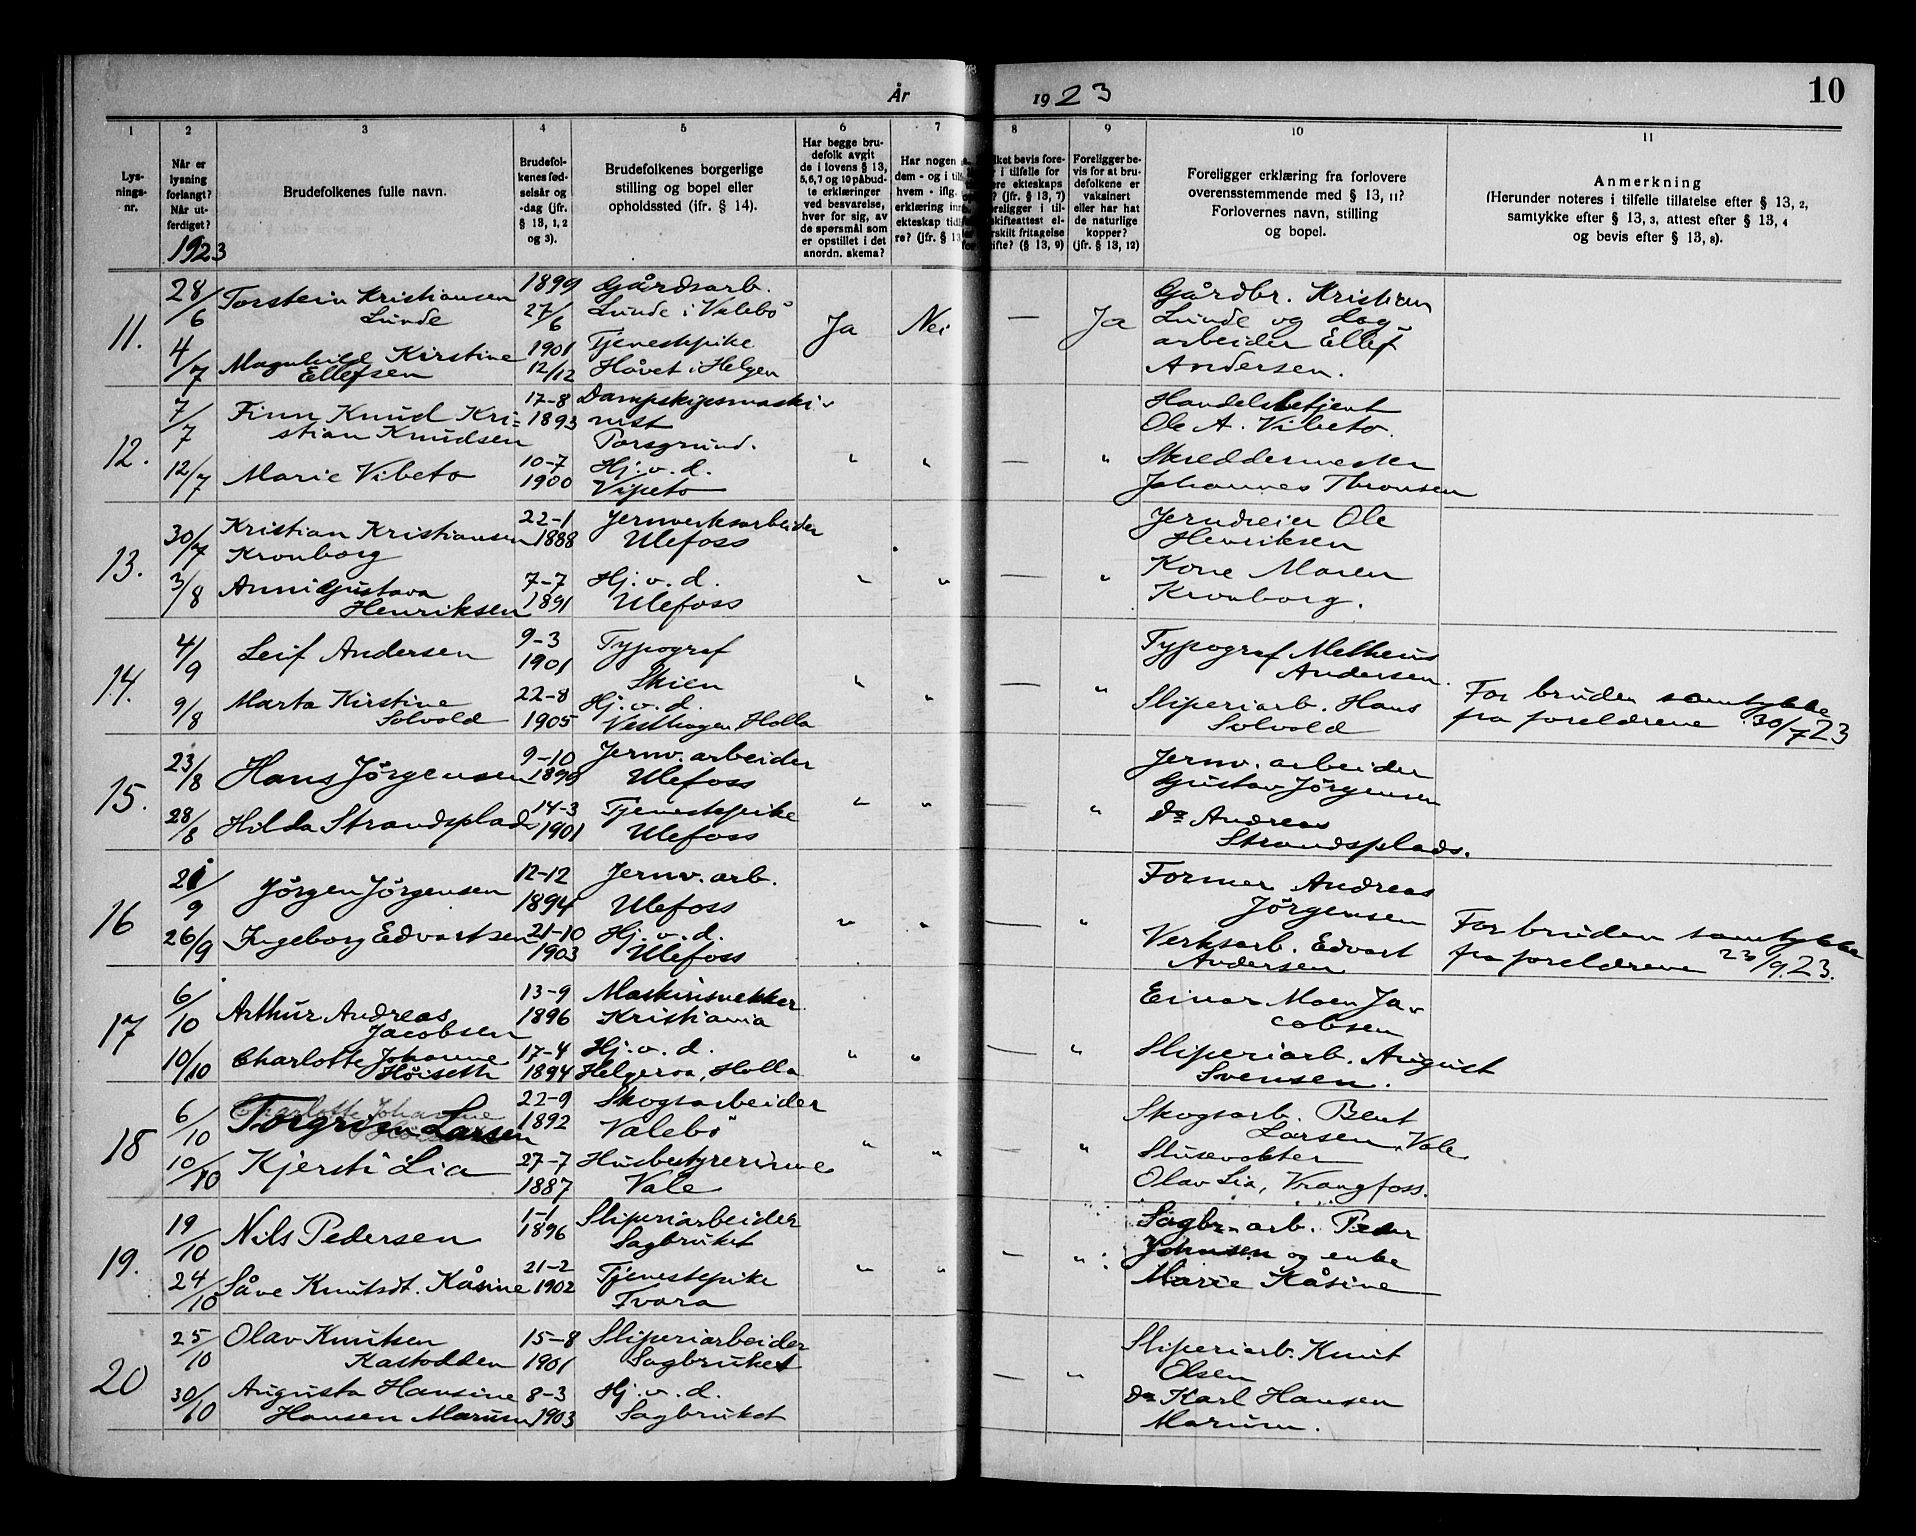 År 1923
10
1 2 3 4 5 6 7 8 9 10 11
Lys-
nings-
nr.
Når er
lysning
forlangt?
Når ut-
ferdiget?
1923
Brudefolkenes fulle navn.
Brudefol-
kenes fød-
selsår og
-dag (jfr.
§ 13, 1, 2
og 3).
Brudefolkenes borgerlige
stilling og bopel eller
opholdssted (ifr. § 14).
Har begge bru-
defolk avgit
de i lovens § 13,
5, 6, 7 og 10 påbud-
te erklæringer
ved besvarelse,
hver for sig, av
de spørsmål som
er opstillet i det
anordn. skema?
Har nogen
dem - og i tilf
hvem - iflg.
erklæring inn
ekteskap tidl
re? (jfr. § 13
lket bevis fore-
i tilfelle for
ere ekteskaps
? (jfr. § 13, 7)
religger i til-
skifteattest el-
rskilt fritagelse
ifte? (§ 13, 9)
Foreligger be-
vis for at bru-
defolkene er
vaksinert
eller har hat
de naturlige
kopper?
(jfr. § 13, 12)
Foreligger erklæring fra forlovere
overensstemmende med § 13, 11?
Forlovernes navn, stilling
og bopel.
Anmerkning
(Herunder noteres i tilfelle tillatelse efter § 13, 2,
samtykke efter § 13, 3, attest efter § 13, 4
og bevis efter § 13, 8).
11.
28/6
4/7
Torstein Kristiansen
Lunde
Magnhild Kirstine
Ellefsen
1899
27/6
1901
12/12
Gårdsarb.
Lunde i Valebö
Tjenestepike
Håvet i Helgen
Ja Nei — Ja
Gårdbr. Kristian
Lunde og dag-
arbeider Ellef
Andersen.
12.
7/7
12/7
Finn Knud Kri-
stian Knudsen
Marie Vibeto
17-8
1893
10-7
1900
Dampskipsmaski-
nist
Porsgrund.
Hj. v. d.
Vipeto
" " — "
Handelsbetjent
Ole A. Vibeto.
Skreddermester
Johannes Thronsen
13.
30/7
3/8
Kristian Kristiansen
Kronborg
Anni Gustava
Henriksen
22-1
1888
7-7
1891
Jernverksarbeider
Ulefoss
Hj. v. d.
Ulefoss
" " — "
Jerndreier Ole
Henriksen
Kone Maren
Kronborg.
14.
4/9
9/8
Leif Andersen
Marta Kirstine
Solvold
9-3
1901
22-8
1905
Typograf
Skien
Hj. v. d.
Vesthagen, Holla
" " — "
Typograf Metheus
Andersen.
Sliperiarb. Hans
Solvold
For bruden samtykke
fra foreldrene 30/7 23
15.
23/8
28/8
Hans Jørgensen
Hilda Strandsplads
9-10
1899
14-3
1901
Jernv. arbeider
Ulefoss
Tjenestepike
Ulefoss
" " — "
Jernv. arbeider
Gustav Jörgensen
Do Andreas
Strandsplads.
16
21/9
26/9
Jørgen Jørgensen
Ingeborg Edvartsen
12-12
1894
21-10
1903
Jernv. arb.
Ulefoss
Hj. v. d.
Ulefoss
" " — "
Former Andreas
Jørgensen
Verksarb. Edvart
Andersen
For bruden samtykke
fra foreldrene 23/9 23.
17
6/10
10/10
Arthur Andreas
Jacobsen
Charlotte Johanne
Höiseth
13-9
1896
17-4
1894
Kristiania
Hj. v. d.
Helgeroa, Holla
" " — "
Einar Moen Ja-
cobsen
Sliperiarb. August
Svensen.
18
6/10
10/10
Charlotte Johanne
Torgrim Larsen
Kjersti Lia
22-9
1892
27-7
1887
Skogsarbeider
Valebö
Husbestyrerinne
Vale
" " — "
Skogsarb. Bent
Larsen, Vale
Slusevokter
Olav Lia, Vrangfoss.
19.
19/10
24/10
Nils Pedersen
Såve Knutsdt. Kåsine
1-1
1896
21-2
1902
Sliperiarbeider
Sagbruket
Tjenestepike
Tvara
" " — "
Sagbr. arb. Peder
Johnsen og enke
Marie Kåsine
20
25/10
30/10
Olav Knutsen
Kastodden
Augusta Hansine
Hansen Marum
15-8
1901
8-3
1903
Sliperiarbeider
Sagbruket
Hj. v. d.
Sagbruket
— "
Sliperiarb. Knut
Olsen
Do Karl Hansen
Marum.